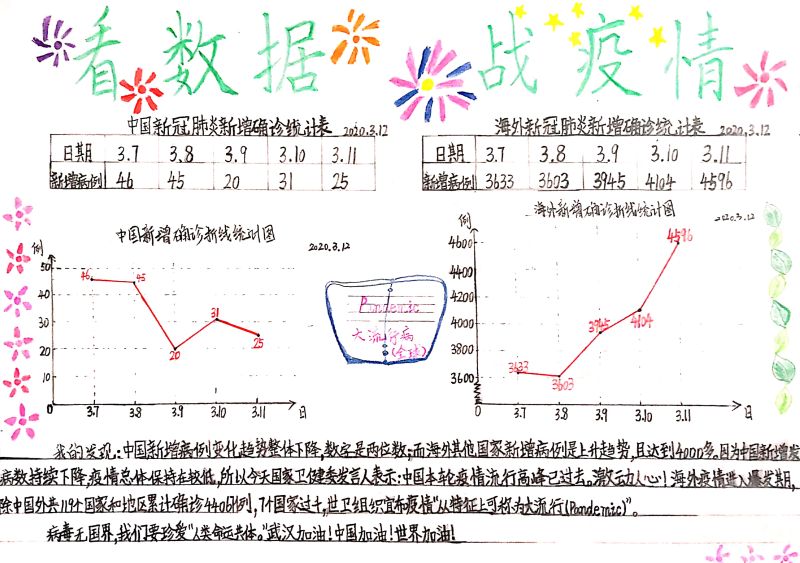 看数据 战疫情
中国新冠肺炎新增确诊统计表 2020.3.12
日期 3.7 3.8 3.9 3.10 3.11
新增病例 46 45 20 31 25
海外新冠肺炎新增确诊统计表 2020.3.12
日期 3.7 3.8 3.9 3.10 3.11
新增病例 3633 3603 3945 4104 4596
中国新增确诊折线统计图
2020.3.12
例
50
40
30
20
10
0
46 45 20 31 25
3.7 3.8 3.9 3.10 3.11 日
Pandemic
大流行病
(全球)
海外新增确诊折线统计图
2020.3.12
例
4600
4400
4200
4000
3800
3600
0
3633 3603 3945 4104 4596
3.7 3.8 3.9 3.10 3.11 日
我的发现:中国新增病例变化趋势整体下降,数字是两位数;而海外其他国家新增病例是上升趋势,且达到4000多。因为中国新增发
病数持续下降,疫情总体保持在较低,所以今天国家卫健委发言人表示:中国本轮疫情流行高峰已过去。激动人心!海外疫情进入爆发期,
除中国外共119个国家和地区累计确诊44061例,7个国家过千,世卫组织宣布疫情"从特征上可称为大流行(Pandemic)"。
病毒无国界,我们要珍爱"人类命运共体。"武汉加油!中国加油!世界加油!